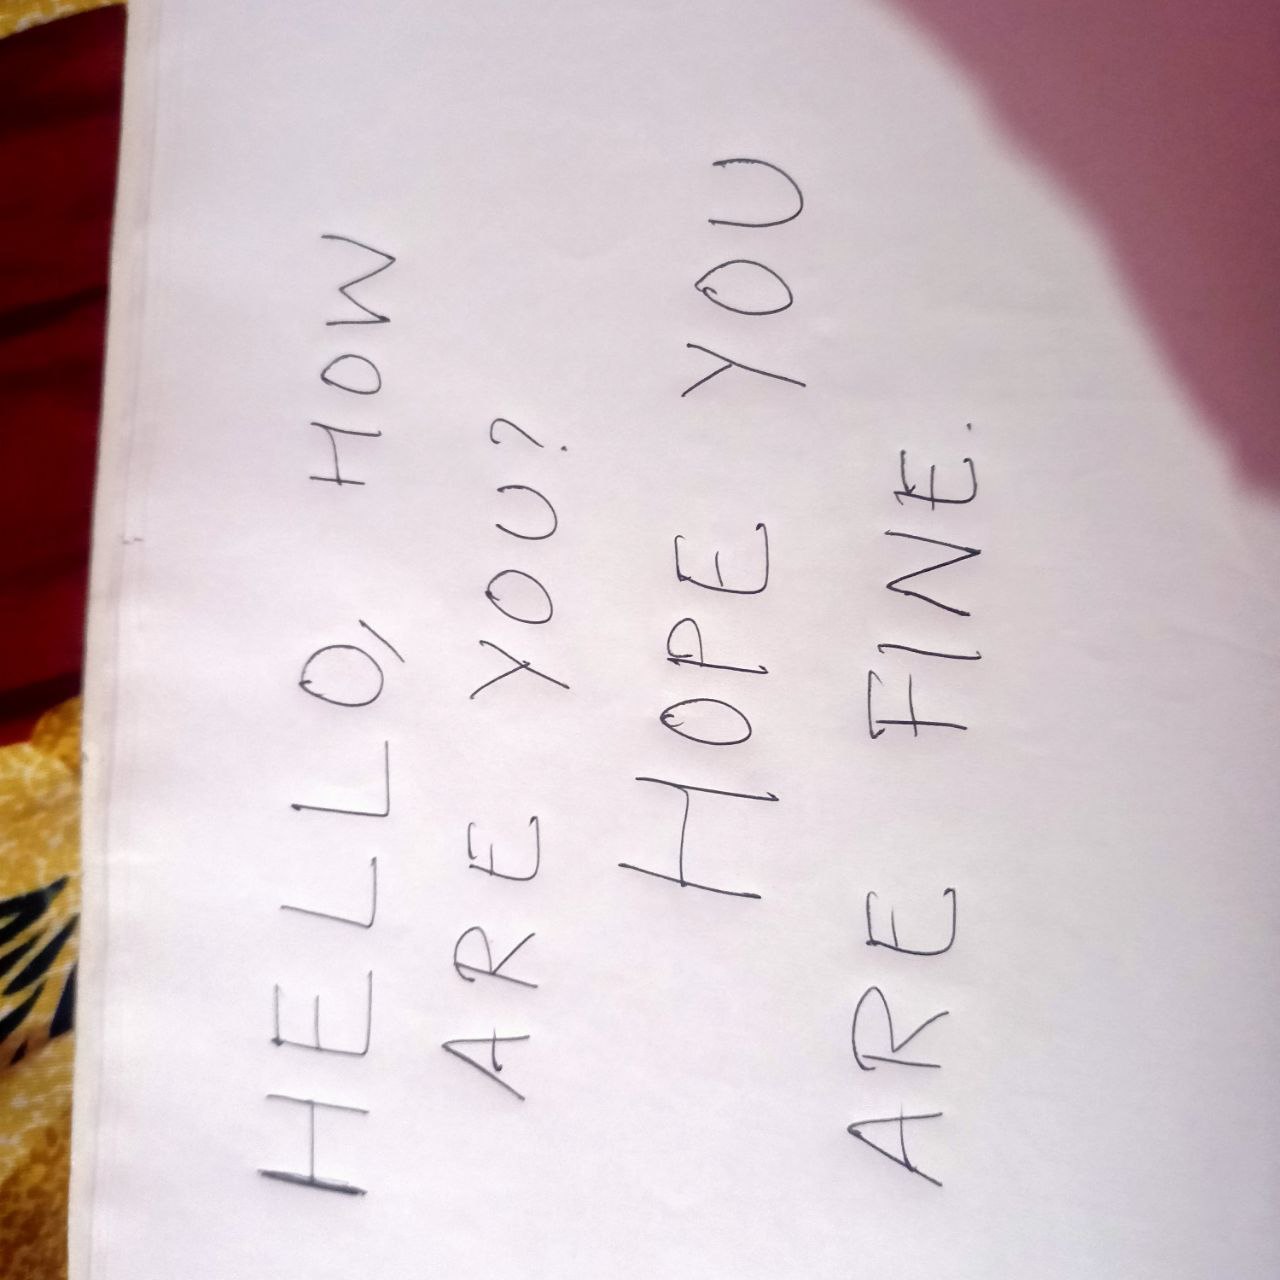 HELLO, HOW
ARE YOU?
HOPE YOU
ARE FINE.